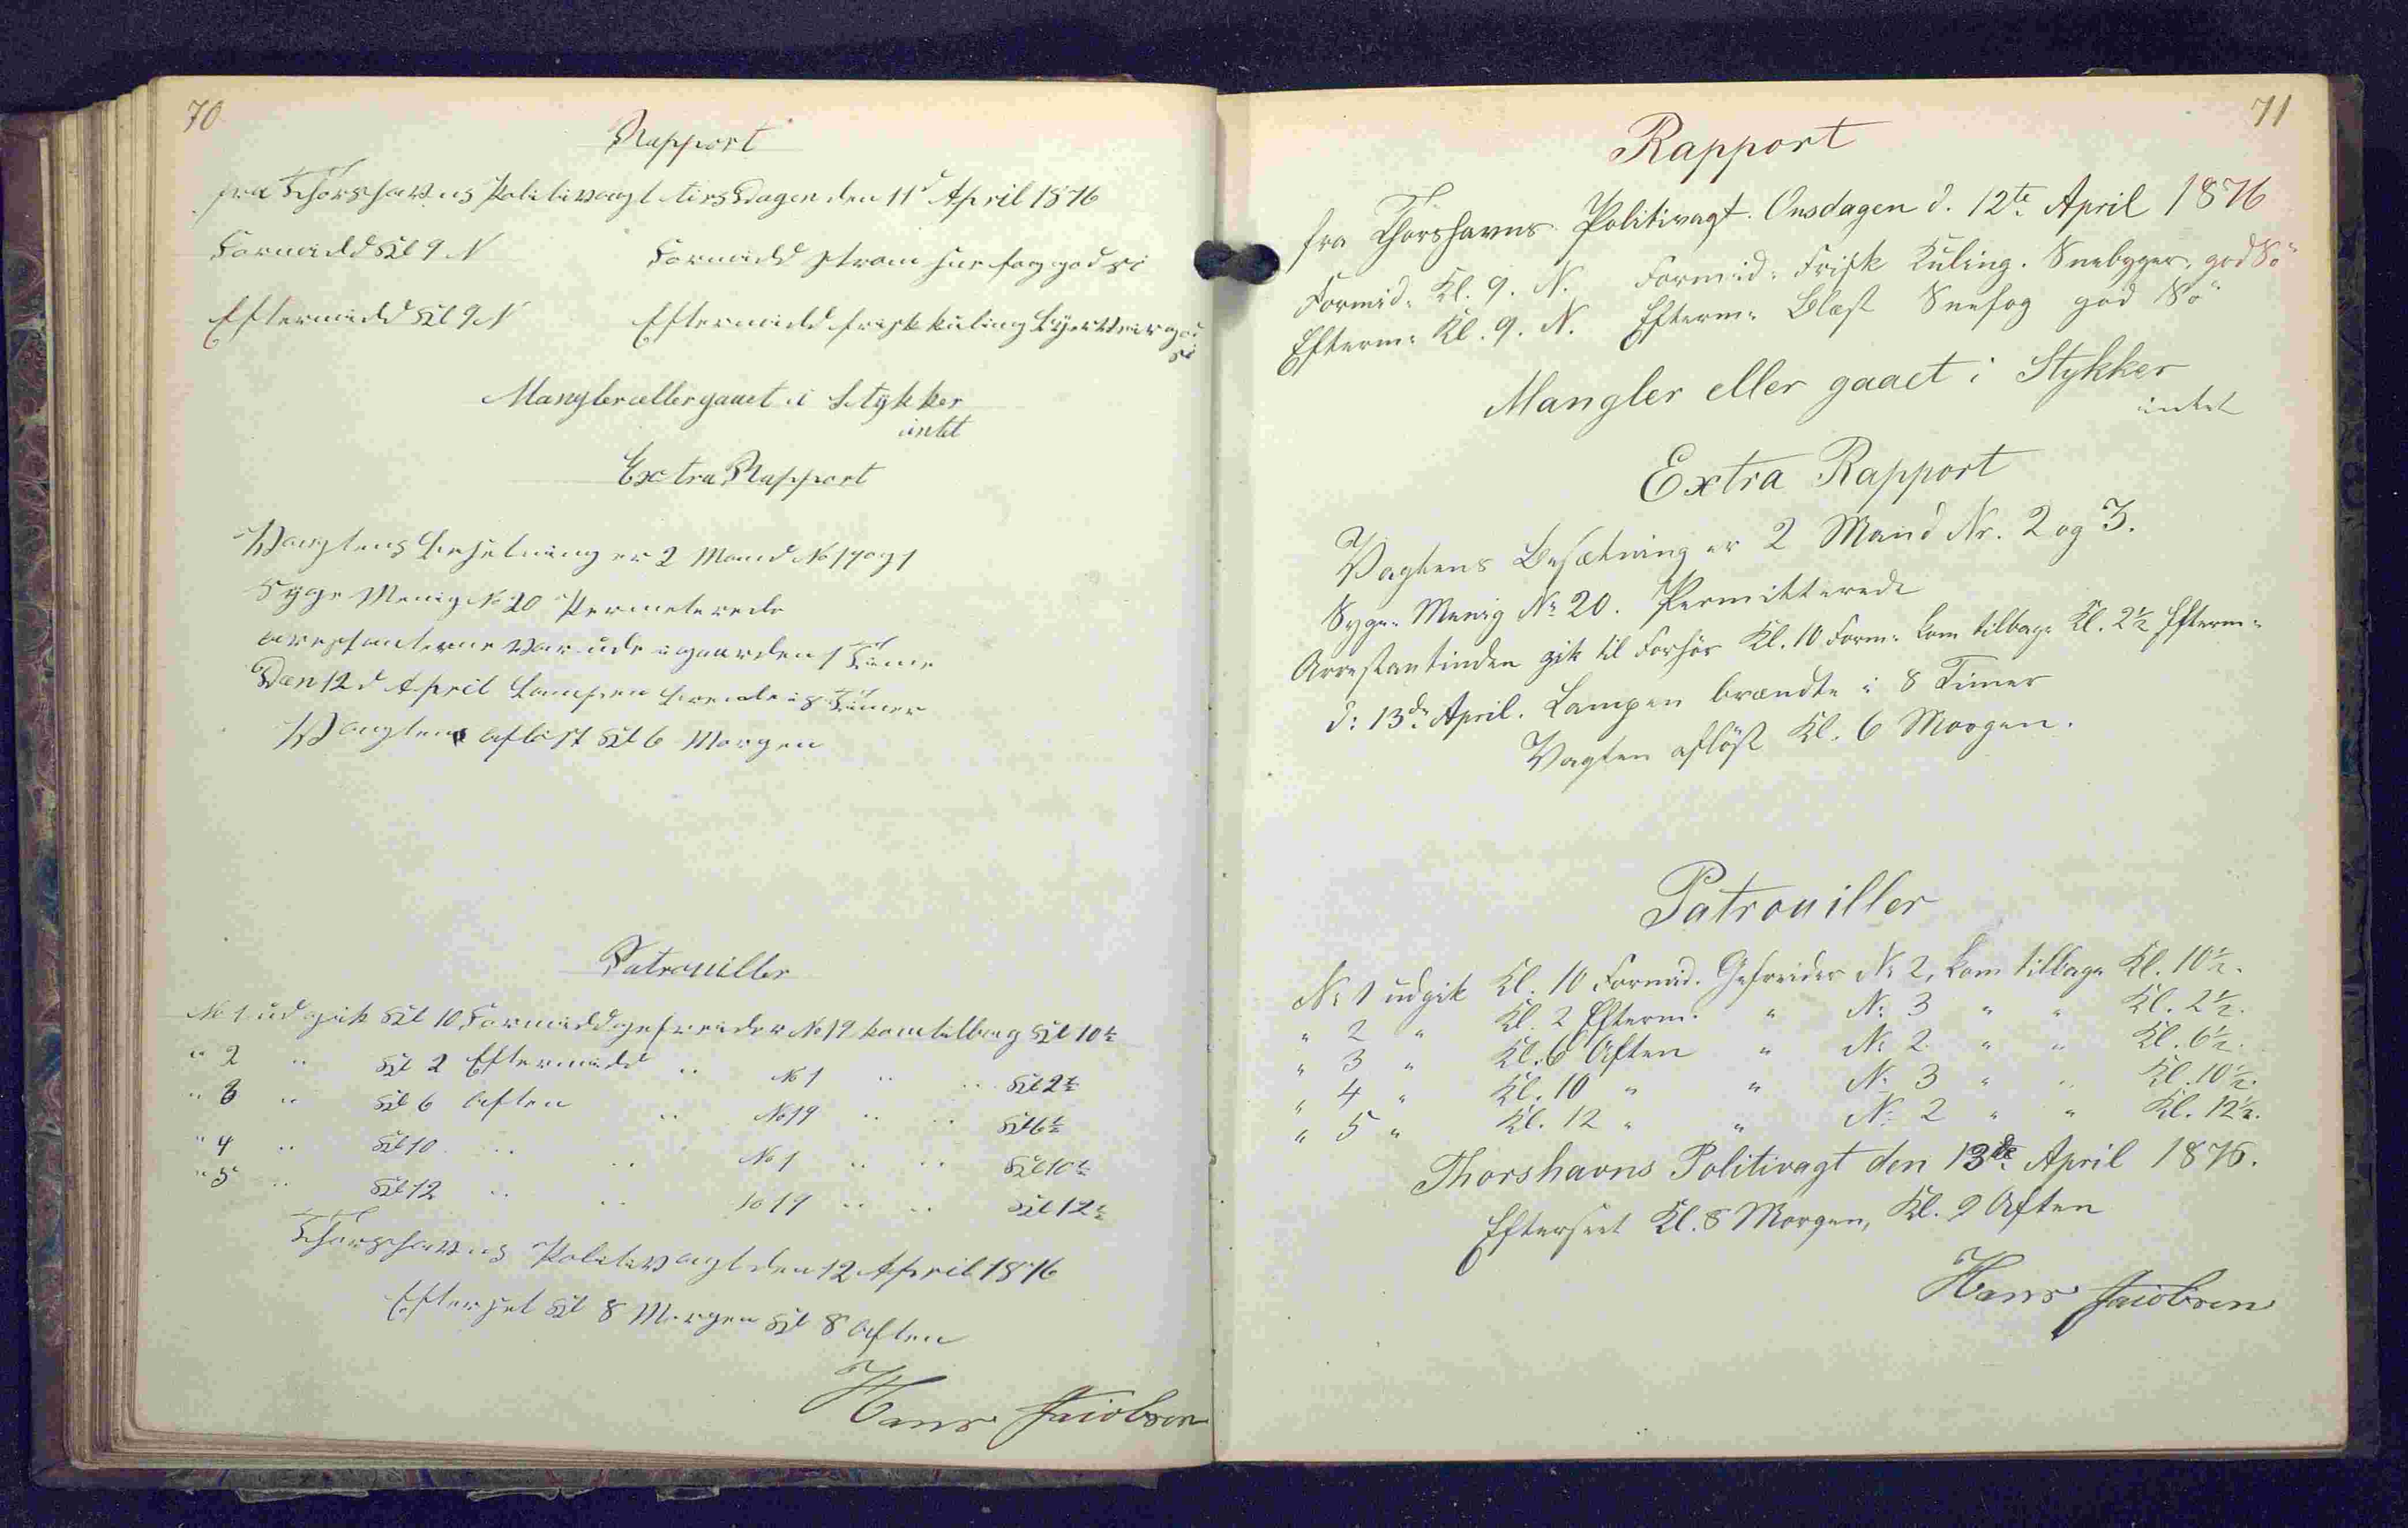 70
Rapport
fra Thorshavns Politivagt tirsdagen den 11d April 1876
Formidd Kl 9 N Formidd strom snefog god si
Eftermidd Kl 9 N Eftermidd frisk kuling god
si
Mangler eller gaaet i Stykker
intet
Extra Rapport
Vagtens besetning er 2 Mand No 19 og 1
Syge Menig No 20 Permeterede
arestanterne var ude i gaarden 1 Time
Den 12d April Lampen brende i 8 Timer
Vagten aflöst Kl 6 Morgen
Patrouiller
No 1 udgik Kl 10 Formidd gefreider No 19 kom tilbag Kl 10½
" 2 " Kl 2 Eftermidd " No 1 " " Kl 2½
" 3 " Kl 6 Aften " No 19 " " Kl 6½
" 4 " Kl 10 " " No 1 " " Kl 10½
" 5 " Kl 12 " " No 19 " " Kl 12½
Thorshavns Politivagt den 12 April 1876
Efterset Kl 8 Morgen Kl 8 Aften
Hans Jacobsen
71
Rapport
fra Thorshavns Politivagt. Onsdagen d. 12te April 1876
Formid: Kl. 9. N. Formid: Frisk Kuling. Snebyger, god Sö
Efterm: Kl. 9. N. Efterm: Blæst Snefog god Sö
Mangler eller gaaet i Stykker
intet
Extra Rapport
Vagtens Besætning er 2 Mand Nr. 2 og 3.
Syge: Menig No 20. Permitterede
Arrestantinden gik til Forhör Kl. 10 Form: kom tilbage Kl. 2½ Efterm:
d: 13de April. Lampen brændte i 8 Timer
Vagten aflöst Kl. 6 Morgen.
Patrouiller
No 1 udgik Kl. 10 Formid. Gefreider No 2, kom tilbage Kl. 10½.
" 2 " Kl. 2 Efterm. " No 3 " " Kl. 2½.
" 3 " Kl. 6 Aften " No 2 " " Kl. 6½.
" 4 " Kl. 10 " " No 3 " " Kl. 10½.
" 5 " Kl. 12 " " No 2 " " Kl. 12½.
Thorshavns Politivagt den 13de April 1876.
Efterseet Kl. 8 Morgen, Kl. 9 Aften
Hans Jacobsen